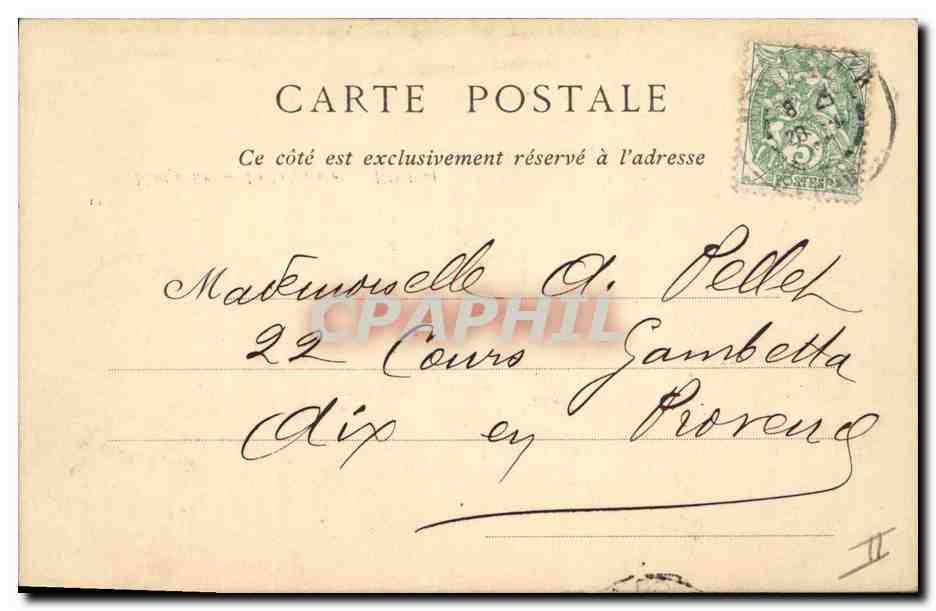 CARTE POSTALE
Ce côté est exclusivement réservé à l'adresse
5
POSTES
Mademoiselle A. Pellet
CPAPHIL
22 Cours Gambetta
Aix en Provence
II